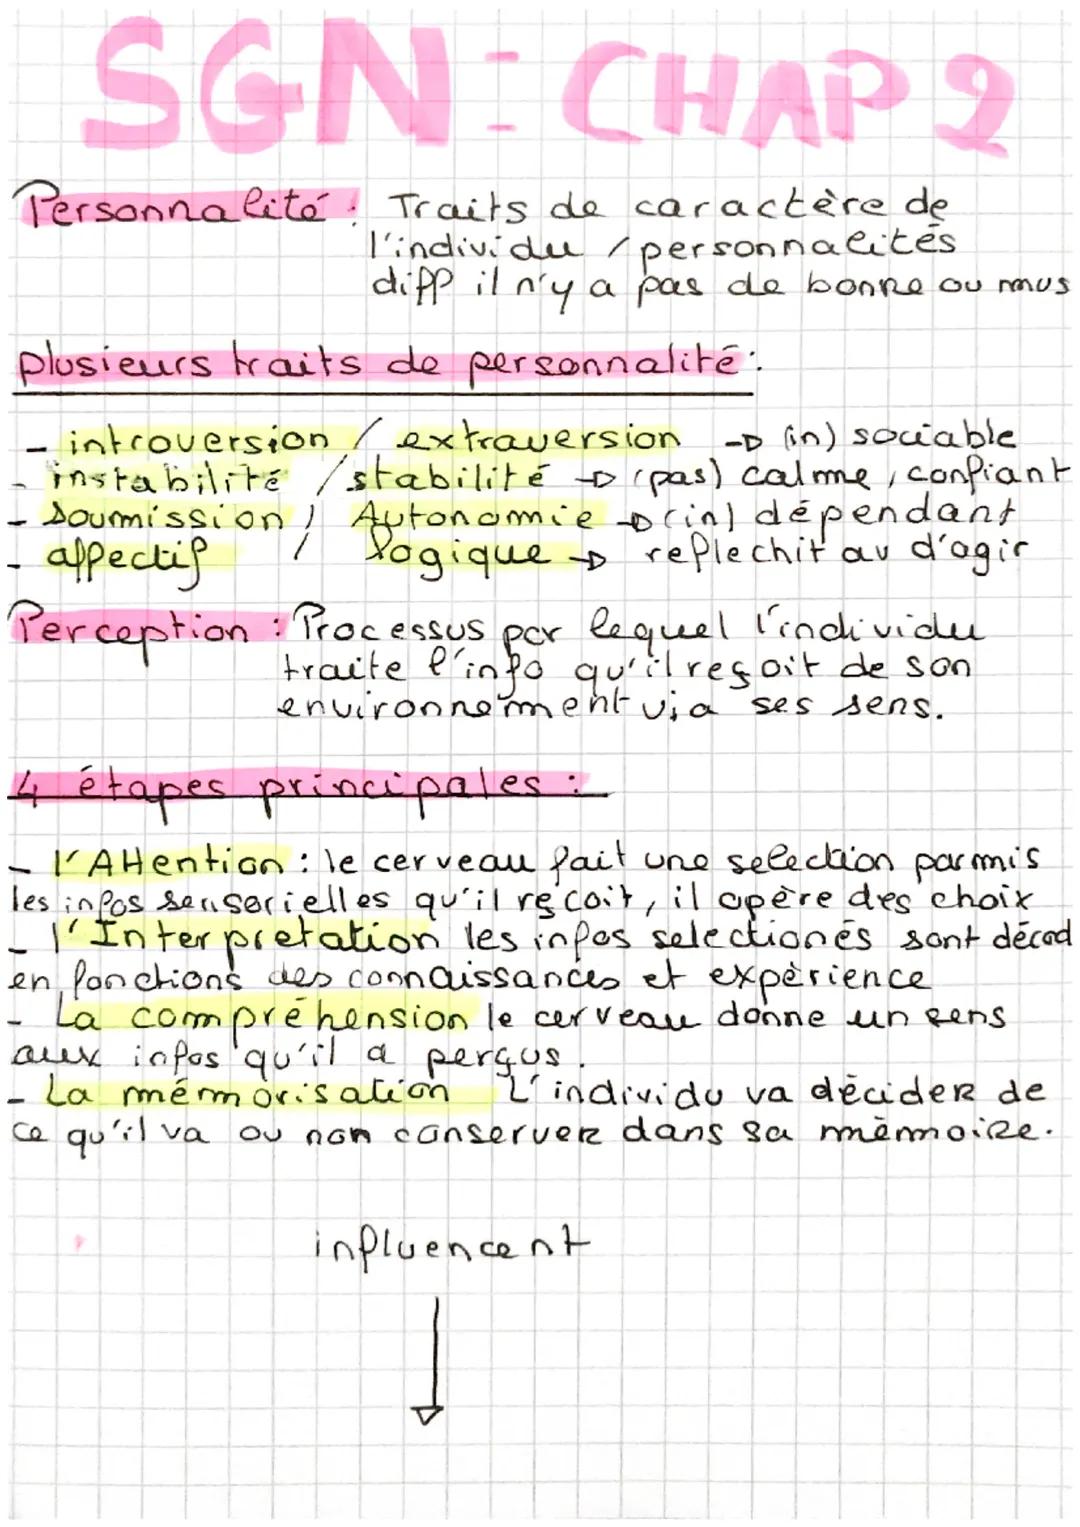 SGN : CHAP 2
Personnalité : Traits de caractère de
l'individu / personnalités
diff il n'y a pas de bonne ou mus
plusieurs traits de personnalité :
- introversion / extraversion → (in) sociable
- instabilité / stabilité → (pas) calme, confiant
- Soumission / Autonomie → (in) dépendant
- affectif / logique → reflechit av d'agir
Perception : Processus par lequel l'individu
traite l'info qu'il reçoit de son
environnement via ses sens.
4 étapes principales :
- l'Attention : le cerveau fait une selection parmis
les infos sensorielles qu'il reçoit, il opère des choix
- l'Interpretation les infos selectionés sont décod
en fonctions des connaissances et expèrience
- La compréhension le cerveau donne un sens
aux infos qu'il a perçus.
- La mémorisation L'individu va décider de
ce qu'il va ou non conserver dans sa mèmoire.
influencent
↓